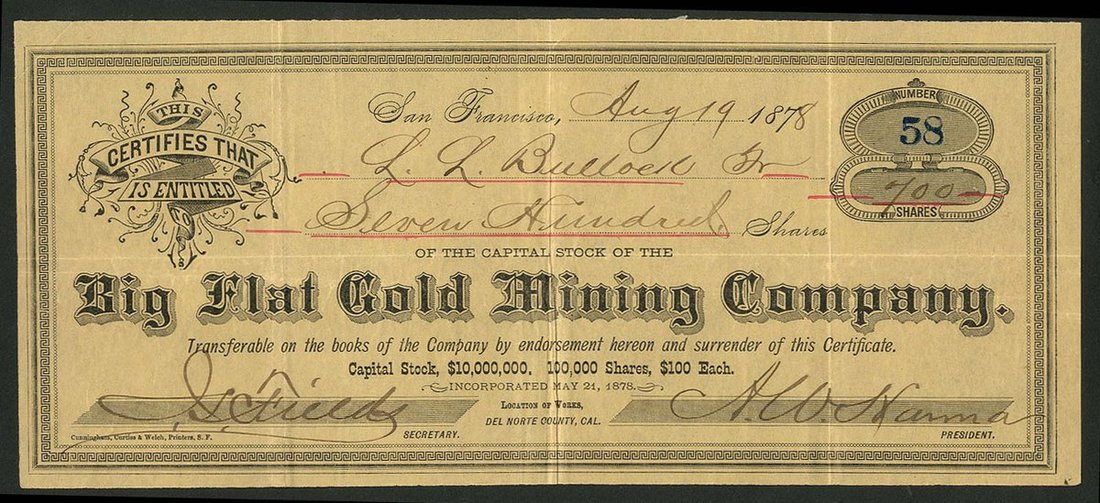 THIS
CERTIFIES THAT
IS ENTITLED
San Francisco, Aug 19 1878
NUMBER
58
L. L. Bullock Tr
700
SHARES
Seven Hundred Shares
OF THE CAPITAL STOCK OF THE
Big Flat Gold Mining Company.
Transferable on the books of the Company by endorsement hereon and surrender of this Certificate.
Capital Stock, $10,000,000. 100,000 Shares, $100 Each.
INCORPORATED MAY 21, 1878.
J. S. Fields
LOCATION OF WORKS,
A W. Hanna
DEL NORTE COUNTY, CAL.
Cunningham, Curtiss & Welch, Printers, S. F.
SECRETARY.
PRESIDENT.